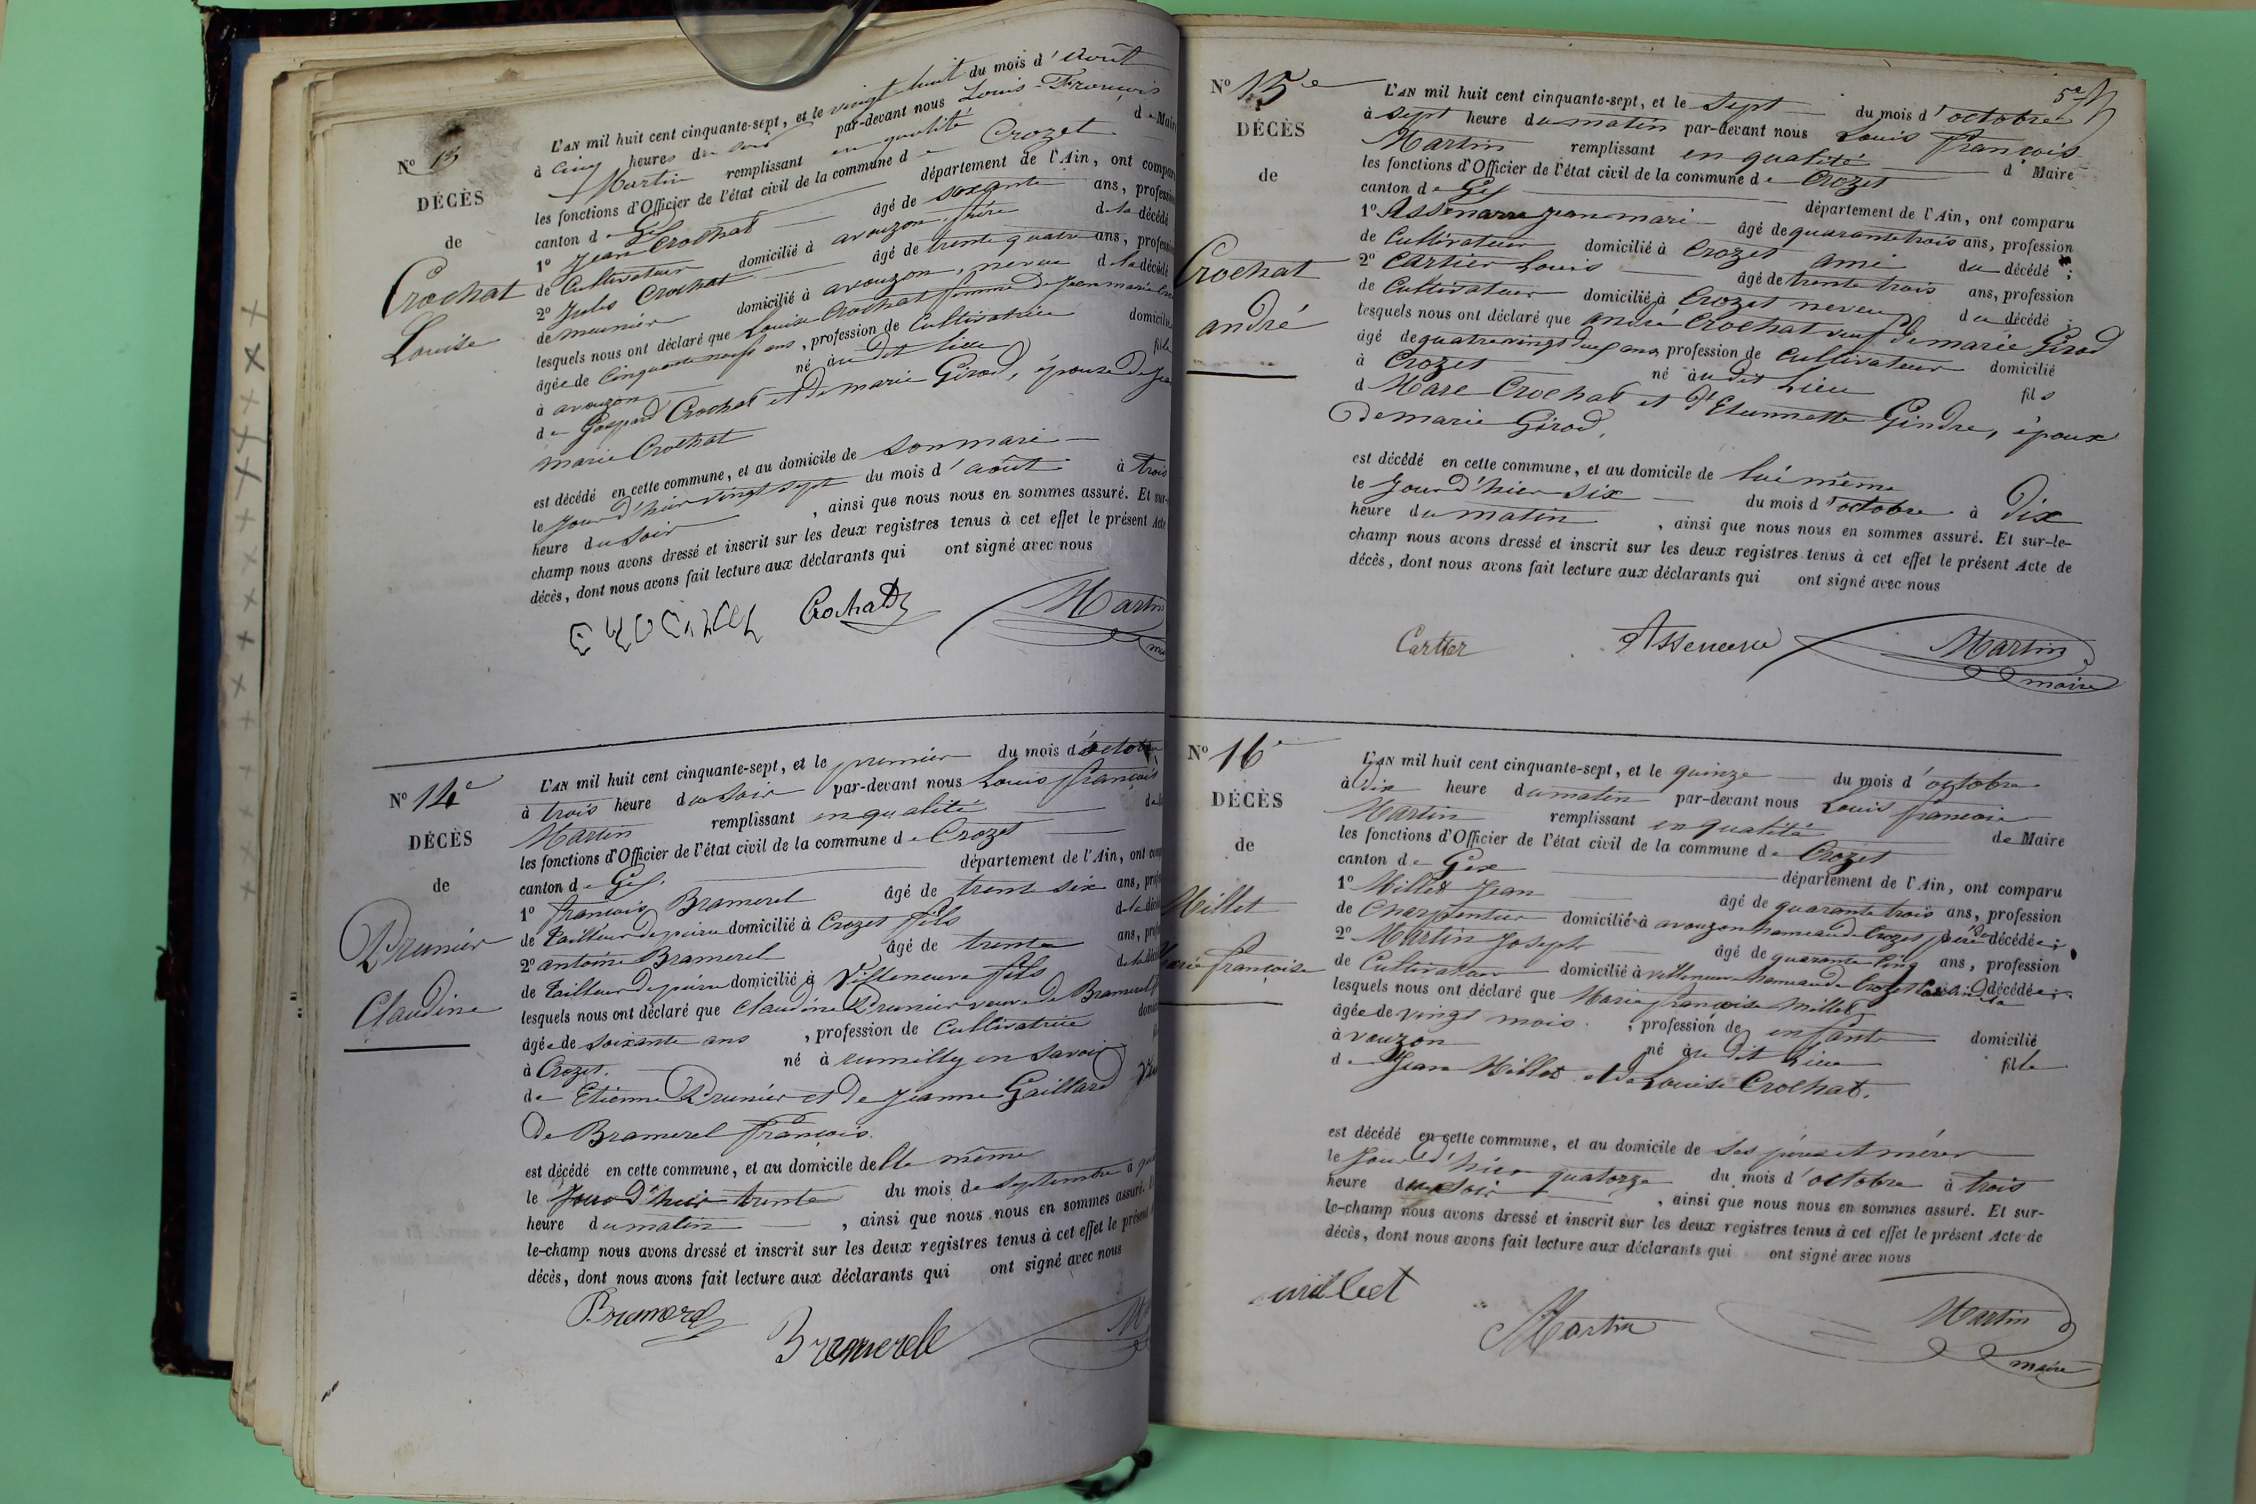 No 13
DÉCÈS
de
Crochat
Louise
L'AN mil huit cent cinquante-sept, et le vingt huit du mois d'août
à cinq heures du soir par-devant nous Louis-François
Martin remplissant en qualité de Maire
les fonctions d'Officier de l'état civil de la commune de Crozet
canton de Gex département de l'Ain, ont compar
1o Jean Crochat âgé de soxante ans, profession
de Cultivateur domicilié à avouzon frére de la décédé
2o Jules Crochat âgé de trente quatre ans, profession
de meunier domicilié à avouzon, neveu de la décédé
lesquels nous ont déclaré que Louise Crochat femme de Jean marie
âgée de Cinquante neuf ans, profession de Cultivatrice domicilié
à avouzon né au dit lieu fille
de Gaspard Crochat et de marie Girod, épouse de Jean
marie Crochat
est décédé en cette commune, et au domicile de son mari
le Jour d'hier vingt sept du mois d'août à trois
heure du soir, ainsi que nous nous en sommes assuré. Et sur-
champ nous avons dressé et inscrit sur les deux registres tenus à cet effet le présent Acte
décès, dont nous avons fait lecture aux déclarants qui ont signé avec nous
Crochat Martin
No 14e
DÉCÈS
de
Brunier
Claudine
L'AN mil huit cent cinquante-sept, et le premier du mois d'octobre
à trois heure du soir par-devant nous Louis françois
Martin remplissant en qualité de
les fonctions d'Officier de l'état civil de la commune de Crozet
canton de Gex. département de l'Ain, ont com
1o françois Bramerel âgé de trente six ans, profe
de tailleur de pierre domicilié à Crozet fils de la décé
2o antoine Bramerel âgé de trente ans, profe
de tailleur de pierre domicilié à Villeneuve fils de la décé
lesquels nous ont déclaré que Claudine Brunier veuve de Bramerel
âgée de soixante ans, profession de Cultivatrice domi
à Crozet. né à rumilly en Savoie
de Etienne Brunier et de Jeanne Gaillard
de Bramerel françois.
est décédé en cette commune, et au domicile delle même
le Jour d'hier trente du mois de septembre à
heure du matin, ainsi que nous nous en sommes assuré.
le-champ nous avons dressé et inscrit sur les deux registres tenus à cet effet le présent
décès, dont nous avons fait lecture aux déclarants qui ont signé avec nous
Bramerel Bramerele
No 15e
DÉCÈS
de
Crochat
andré
L'AN mil huit cent cinquante-sept, et le sept du mois d'octobre
à sept heure du matin par-devant nous Louis françois
Martin remplissant en qualité d Maire
les fonctions d'Officier de l'état civil de la commune de Crozet
canton de Gex département de l'Ain, ont comparu
1o Assenarre jean mari âgé de quarante trois ans, profession
de Cultivateur domicilié à Crozet ami du décédé;
2o Cartier Louis âgé de trente trois ans, profession
de Cultivateur domicilié à Crozet neveu du décédé;
lesquels nous ont déclaré que andré Crochat veuf de marie Girod
âgé de quatre vingt deux ans, profession de Cultivateur domicilié
à Crozet né au dit Lieu fils
d Marc Crochat et d'Etiennette Gindre, époux
De marie Girod,
est décédé en cette commune, et au domicile de lui même
le Jour d'hier six du mois d'octobre à Dix
heure du matin, ainsi que nous nous en sommes assuré. Et sur-le-
champ nous avons dressé et inscrit sur les deux registres tenus à cet effet le présent Acte de
décès, dont nous avons fait lecture aux déclarants qui ont signé avec nous
Cartier Martin
maire
No 16e
DÉCÈS
de
Millet
Marie françoise
L'AN mil huit cent cinquante-sept, et le quinze du mois d'octobre
à dix heure du matin par-devant nous Louis françois
Martin remplissant en qualité de Maire
les fonctions d'Officier de l'état civil de la commune de Crozet
canton de Gex département de l'Ain, ont comparu
1o Millet Jean âgé de quarante trois ans, profession
de Charpentier domicilié à avouzon hameau de Crozet père du décédée;
2o Martin Joseph âgé de quarante cinq ans, profession
de Cultivateur domicilié à villeneuve hameau de Crozet décédée
lesquels nous ont déclaré que Marie françoise Millet
âgée de vingt mois, profession de enfante domicilié
à vouzon né au dit Lieu fille
de Jean Millet et de Louise Crochat.
est décédé en cette commune, et au domicile de ses père et mére
le Jour d'hier quatorze du mois d'octobre à trois
heure du soir, ainsi que nous nous en sommes assuré. Et sur-
le-champ nous avons dressé et inscrit sur les deux registres tenus à cet effet le présent Acte de
décès, dont nous avons fait lecture aux déclarants qui ont signé avec nous
millet Martin Martin
maire